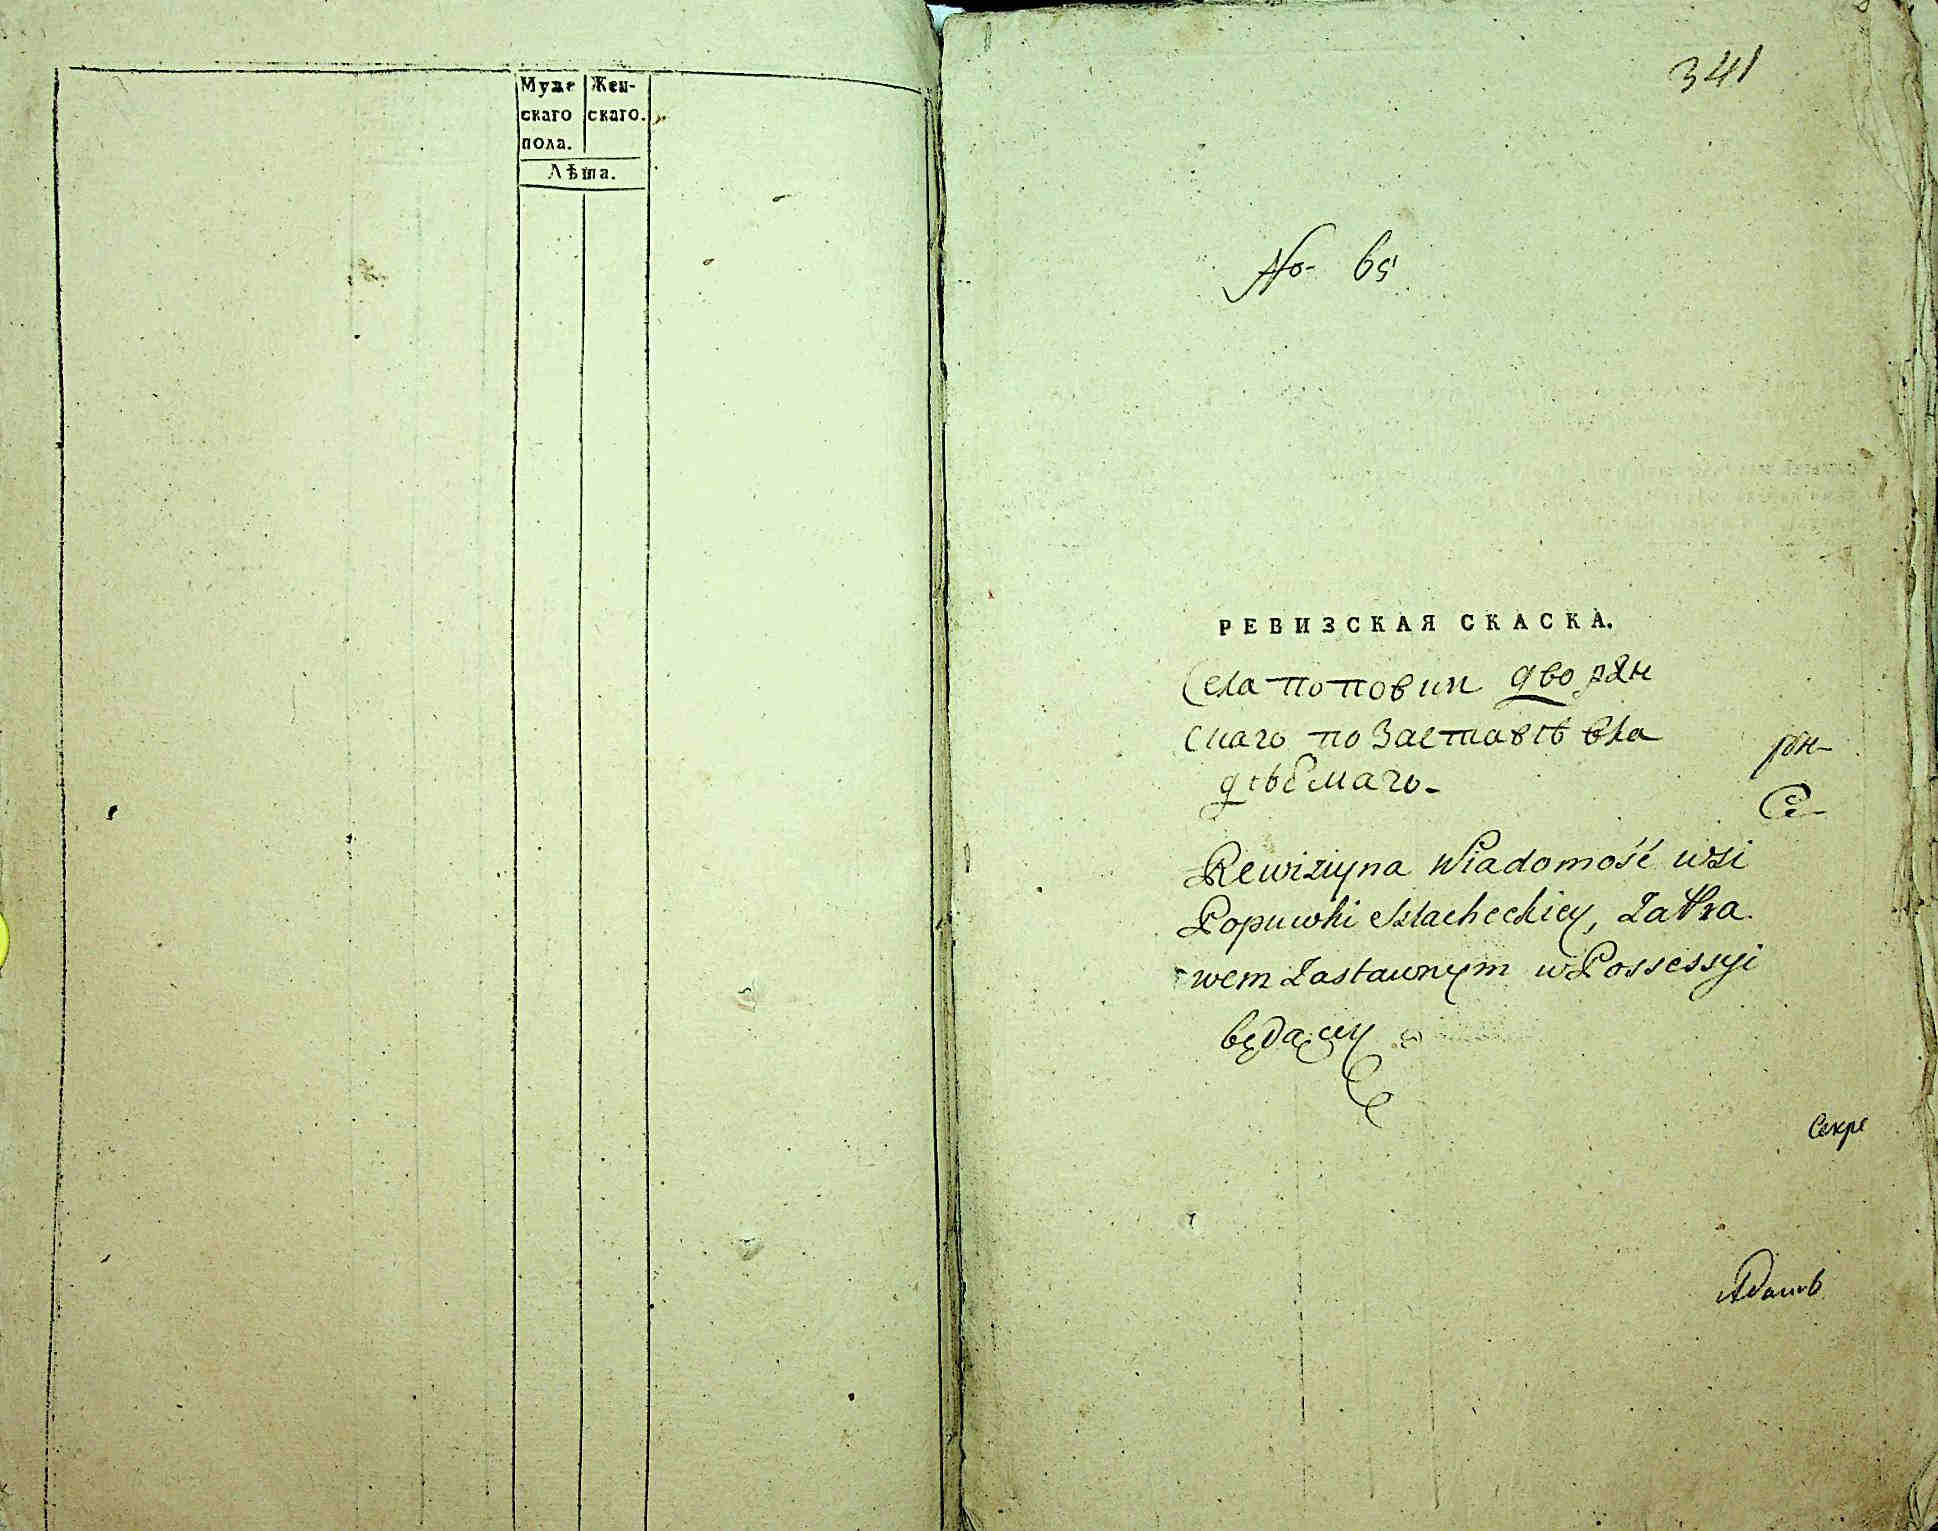 Муже Жен-
скаго скаго.
пола.
Лѣта.
341
No 65
РЕВИЗСКАЯ СКАСКА.
Села Поповки дворян
скаго по Заставѣ вла
дѣемаго.
Rewiziyna Wiadomość wsi
Popuwki Szlacheckiey, Za Pra
wem Zastawnym w Possessyi
będącey
Секре